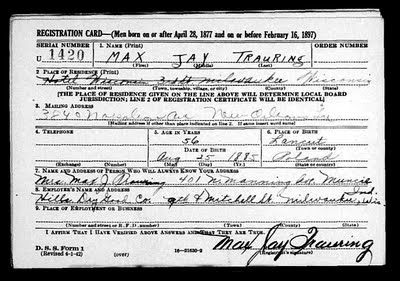 REGISTRATION CARD—(Men born on or after April 28, 1877 and on or before February 16, 1897)
SERIAL NUMBER 1. NAME (Print) ORDER NUMBER
U 1420 MAX JAY TRAURING
(First) (Middle) (Last)
2. PLACE OF RESIDENCE (Print)
Hotel Wisconsin Milwaukee Wisconsin
(Number and street) (Town, township, village, or city) (County) (State)
[THE PLACE OF RESIDENCE GIVEN ON THE LINE ABOVE WILL DETERMINE LOCAL BOARD
JURISDICTION; LINE 2 OF REGISTRATION CERTIFICATE WILL BE IDENTICAL]
3. MAILING ADDRESS
Napoleon Av New Orleans La
[Mailing address if other than place indicated on line 2. If same insert word same]
4. TELEPHONE 5. AGE IN YEARS 6. PLACE OF BIRTH
56 Lancut
DATE OF BIRTH (Town or county)
Aug 25 1885 Poland
(Exchange) (Number) (Mo.) (Day) (Yr.) (State or country)
7. NAME AND ADDRESS OF PERSON WHO WILL ALWAYS KNOW YOUR ADDRESS
Mrs. Max J. Trauring 401 N. Manning St. Muncie Ind.
8. EMPLOYER'S NAME AND ADDRESS
Hills Dry Good Co. 9th & Mitchell St. Milwaukee, Wis
9. PLACE OF EMPLOYMENT OR BUSINESS
(Number and street or R. F. D. number) (Town) (County) (State)
I AFFIRM THAT I HAVE VERIFIED ABOVE ANSWERS AND THAT THEY ARE TRUE.
D. S. S. Form 1
(Revised 4-1-42) (over) 16—21630-2 Max Jay Trauring
(Registrant's signature)